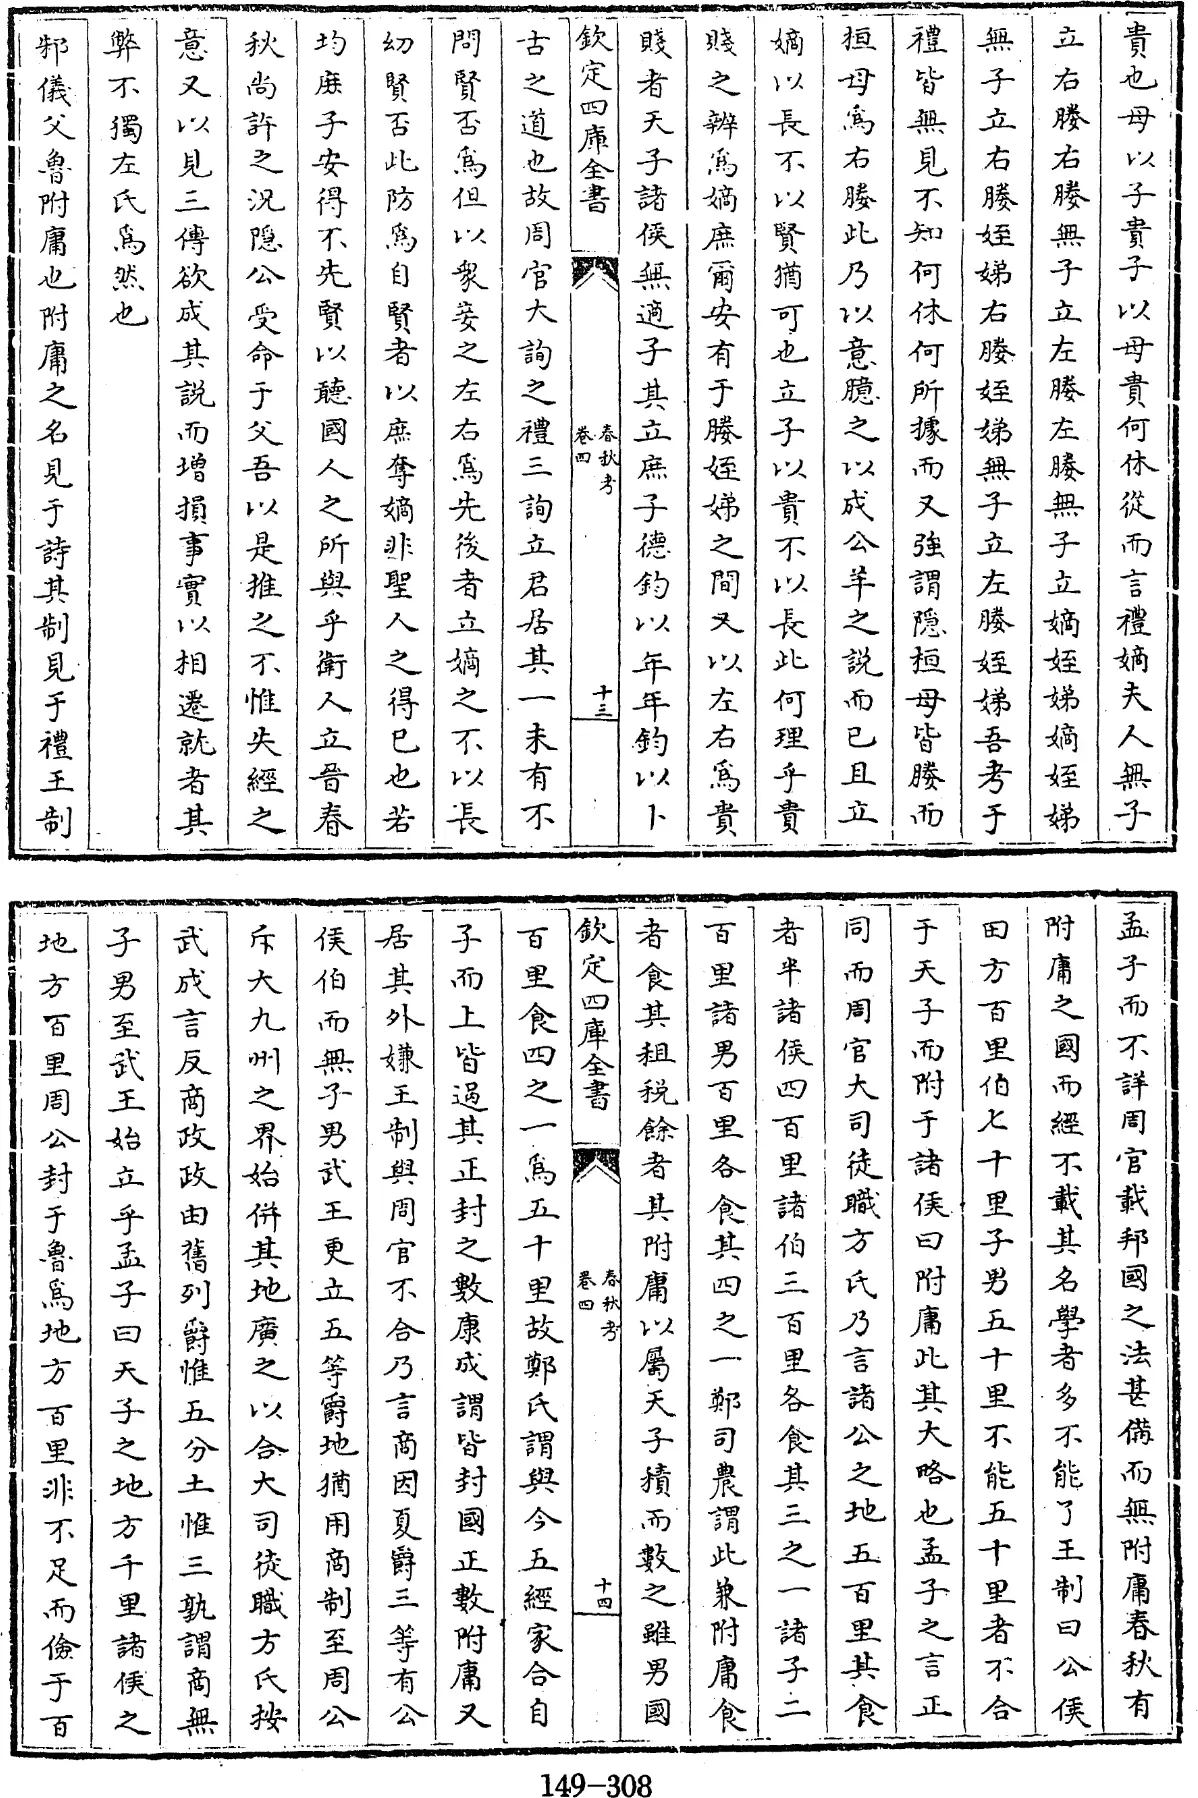 貴也母以子貴子以母貴何休從而言禮嫡夫人無子
立右媵右媵無子立左媵左媵無子立嫡姪娣嫡姪娣
無子立右媵姪娣右媵姪娣無子立左媵姪娣吾考于
禮皆無見不知何休何所據而又強謂隠桓母皆媵而
桓母爲右媵此乃以意臆之以成公羊之説而已且立
嫡以長不以賢猶可也立子以貴不以長此何理乎貴
賤之辨爲嫡庶爾安有于媵姪娣之間又以左右爲貴
賤者天子諸侯無適子其立庶子德鈞以年年鈞以卜
欽定四庫全書
春秋考
卷四
十三
古之道也故周官大詢之禮三詢立君居其一未有不
問賢否爲但以衆妾之左右爲先後者立嫡之不以長
幼賢否此防爲自賢者以庶奪嫡非聖人之得已也若
均庶子安得不先賢以聽國人之所與乎衛人立晉春
秋尚許之況隠公受命于父吾以是推之不惟失經之
意又以見三傳欲成其説而增損事實以相遷就者其
弊不獨左氏爲然也
邾儀父魯附庸也附庸之名見于詩其制見于禮王制
孟子而不詳周官載邦國之法甚備而無附庸春秋有
附庸之國而經不載其名學者多不能了王制曰公侯
田方百里伯七十里子男五十里不能五十里者不合
于天子而附于諸侯曰附庸此其大略也孟子之言正
同而周官大司徒職方氏乃言諸公之地五百里其食
者半諸侯四百里諸伯三百里各食其三之一諸子二
百里諸男百里各食其四之一鄭司農謂此兼附庸食
者食其租税餘者其附庸以屬天子積而數之雖男國
欽定四庫全書
春秋考
卷四
十四
百里食四之一爲五十里故鄭氏謂與今五經家合自
子而上皆過其正封之數康成謂皆封國正數附庸又
居其外嫌王制與周官不合乃言商因夏爵三等有公
侯伯而無子男武王更立五等爵地猶用商制至周公
斥大九州之界始併其地廣之以合大司徒職方氏按
武成言反商政政由舊列爵惟五分土惟三孰謂商無
子男至武王始立乎孟子曰天子之地方千里諸侯之
地方百里周公封于魯爲地方百里非不足而儉于百
149-308